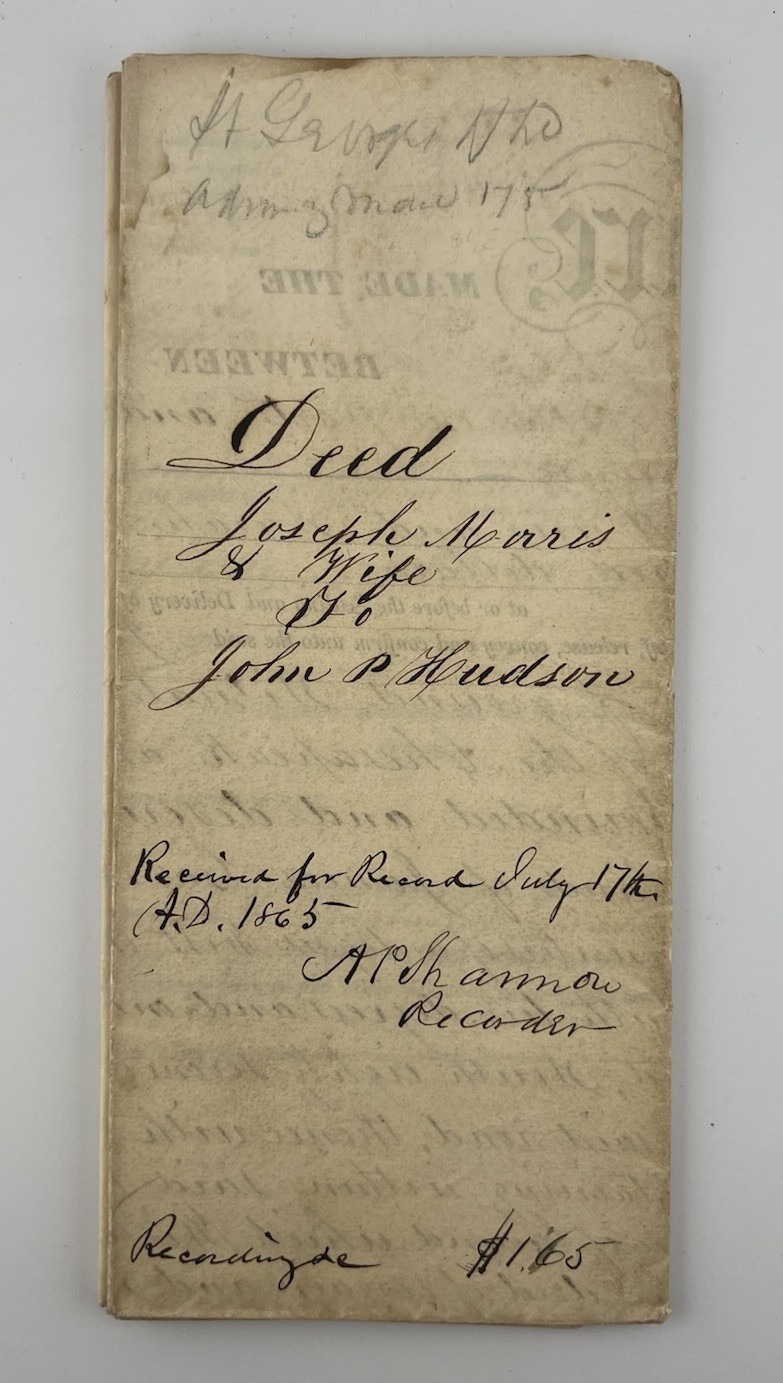 St Georges Hd
175
Deed
Joseph Morris
& Wife
To
John P Hudson
Received for Record July 17th
A.D. 1865
A P Shannon
Recorder
Recording &c $1.65